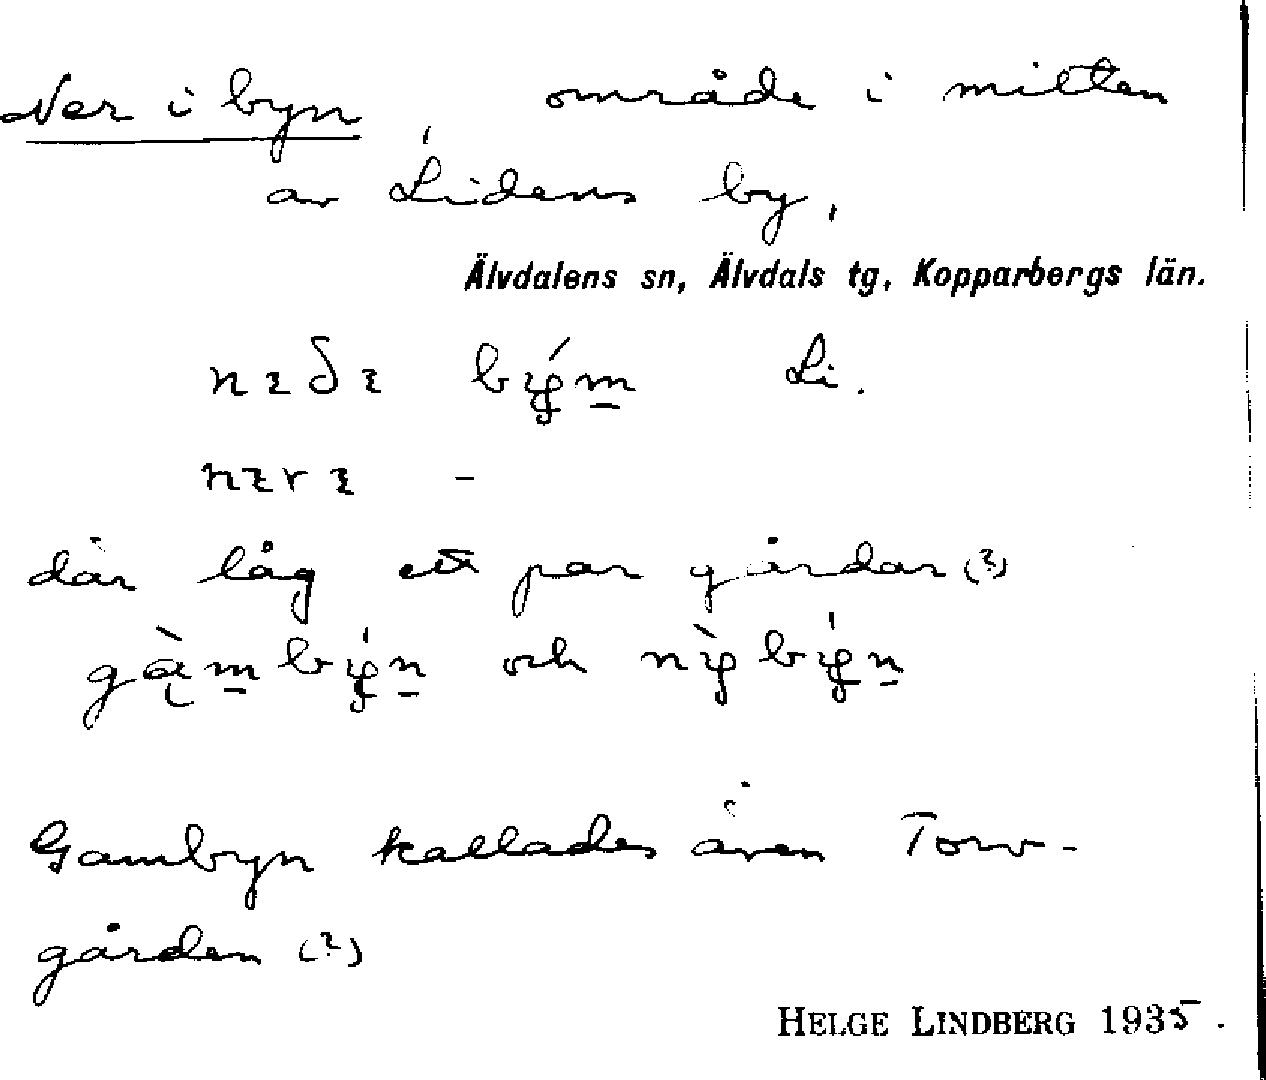 Ner i byn område i mitten
av Lidens by,
Älvdalens sn, Älvdals tg, Kopparbergs län.
Li.
–
där låg ett par gårdar (?)
och
Gambyn kallades även Torv-
gården (?)
HELGE LINDBERG 1935.